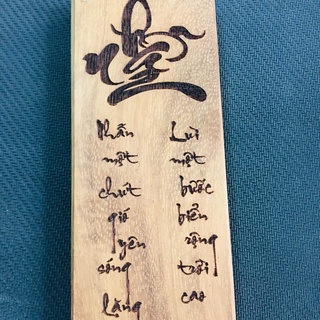 Nhẫn
Nhẫn một chút gió yên sóng lặng
Lùi một bước biển rộng trời cao